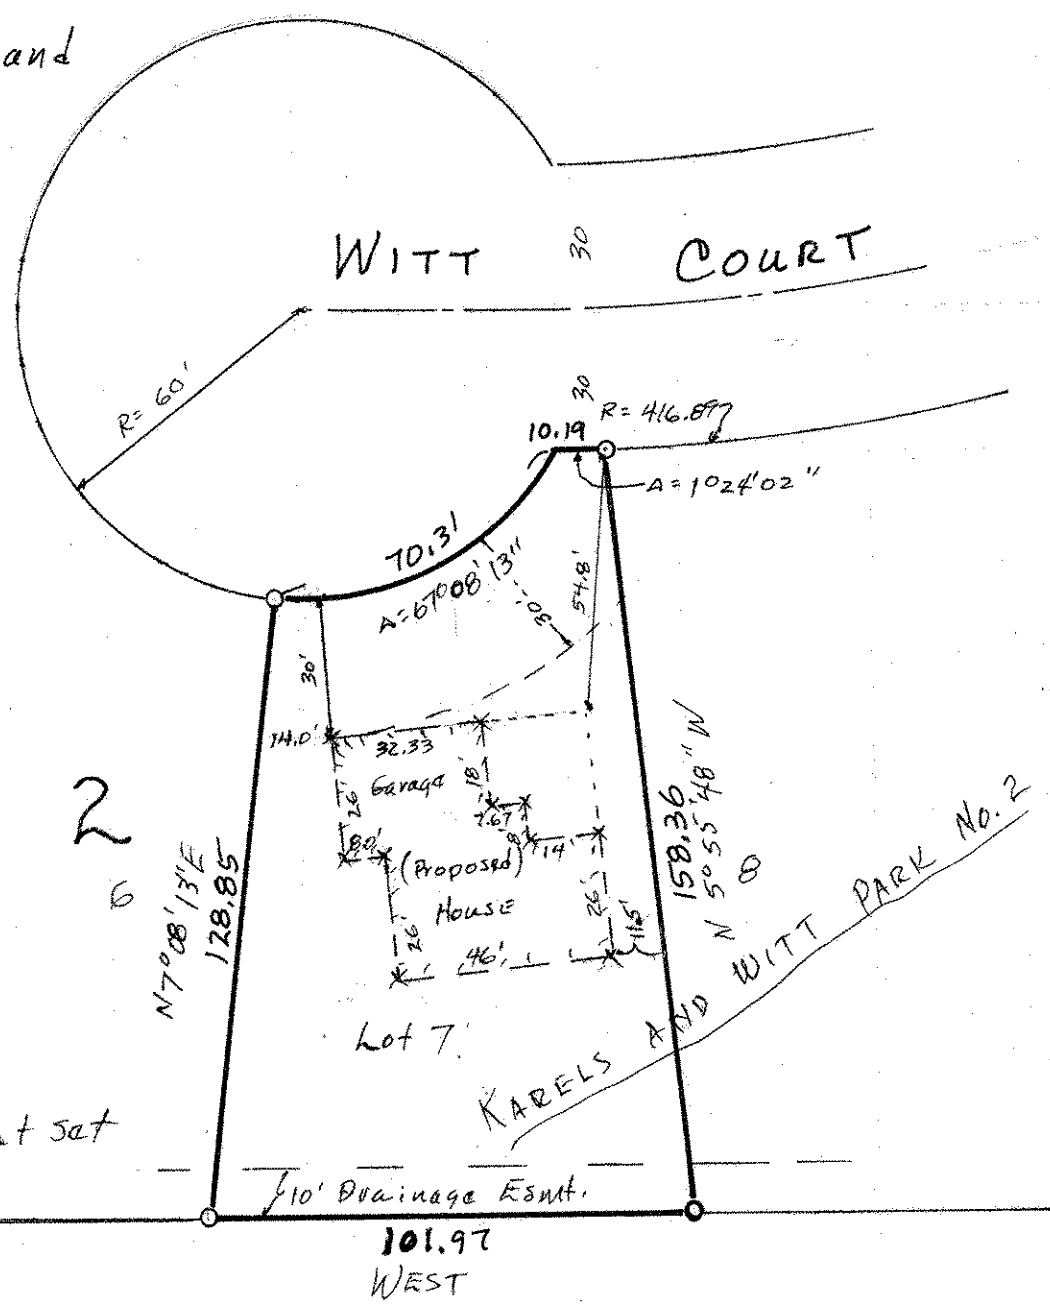 and
WITT COURT
30
R= 60'
30
R= 416.897
10.19
A= 1°24'02"
70.31
A= 67°08'13"
30'
54.8'
30'
14.0'
32.33
Garage
18'
26'
7.67
8'
14'
8.0'
(Proposed)
House
26'
26'
46'
11.5'
2
6
N 7°08'13" E
128.85
158.36
N 5°55'48" W
8
KARELS AND WITT PARK No. 2
Lot 7
t set
10' Drainage Esmt.
101.97
WEST